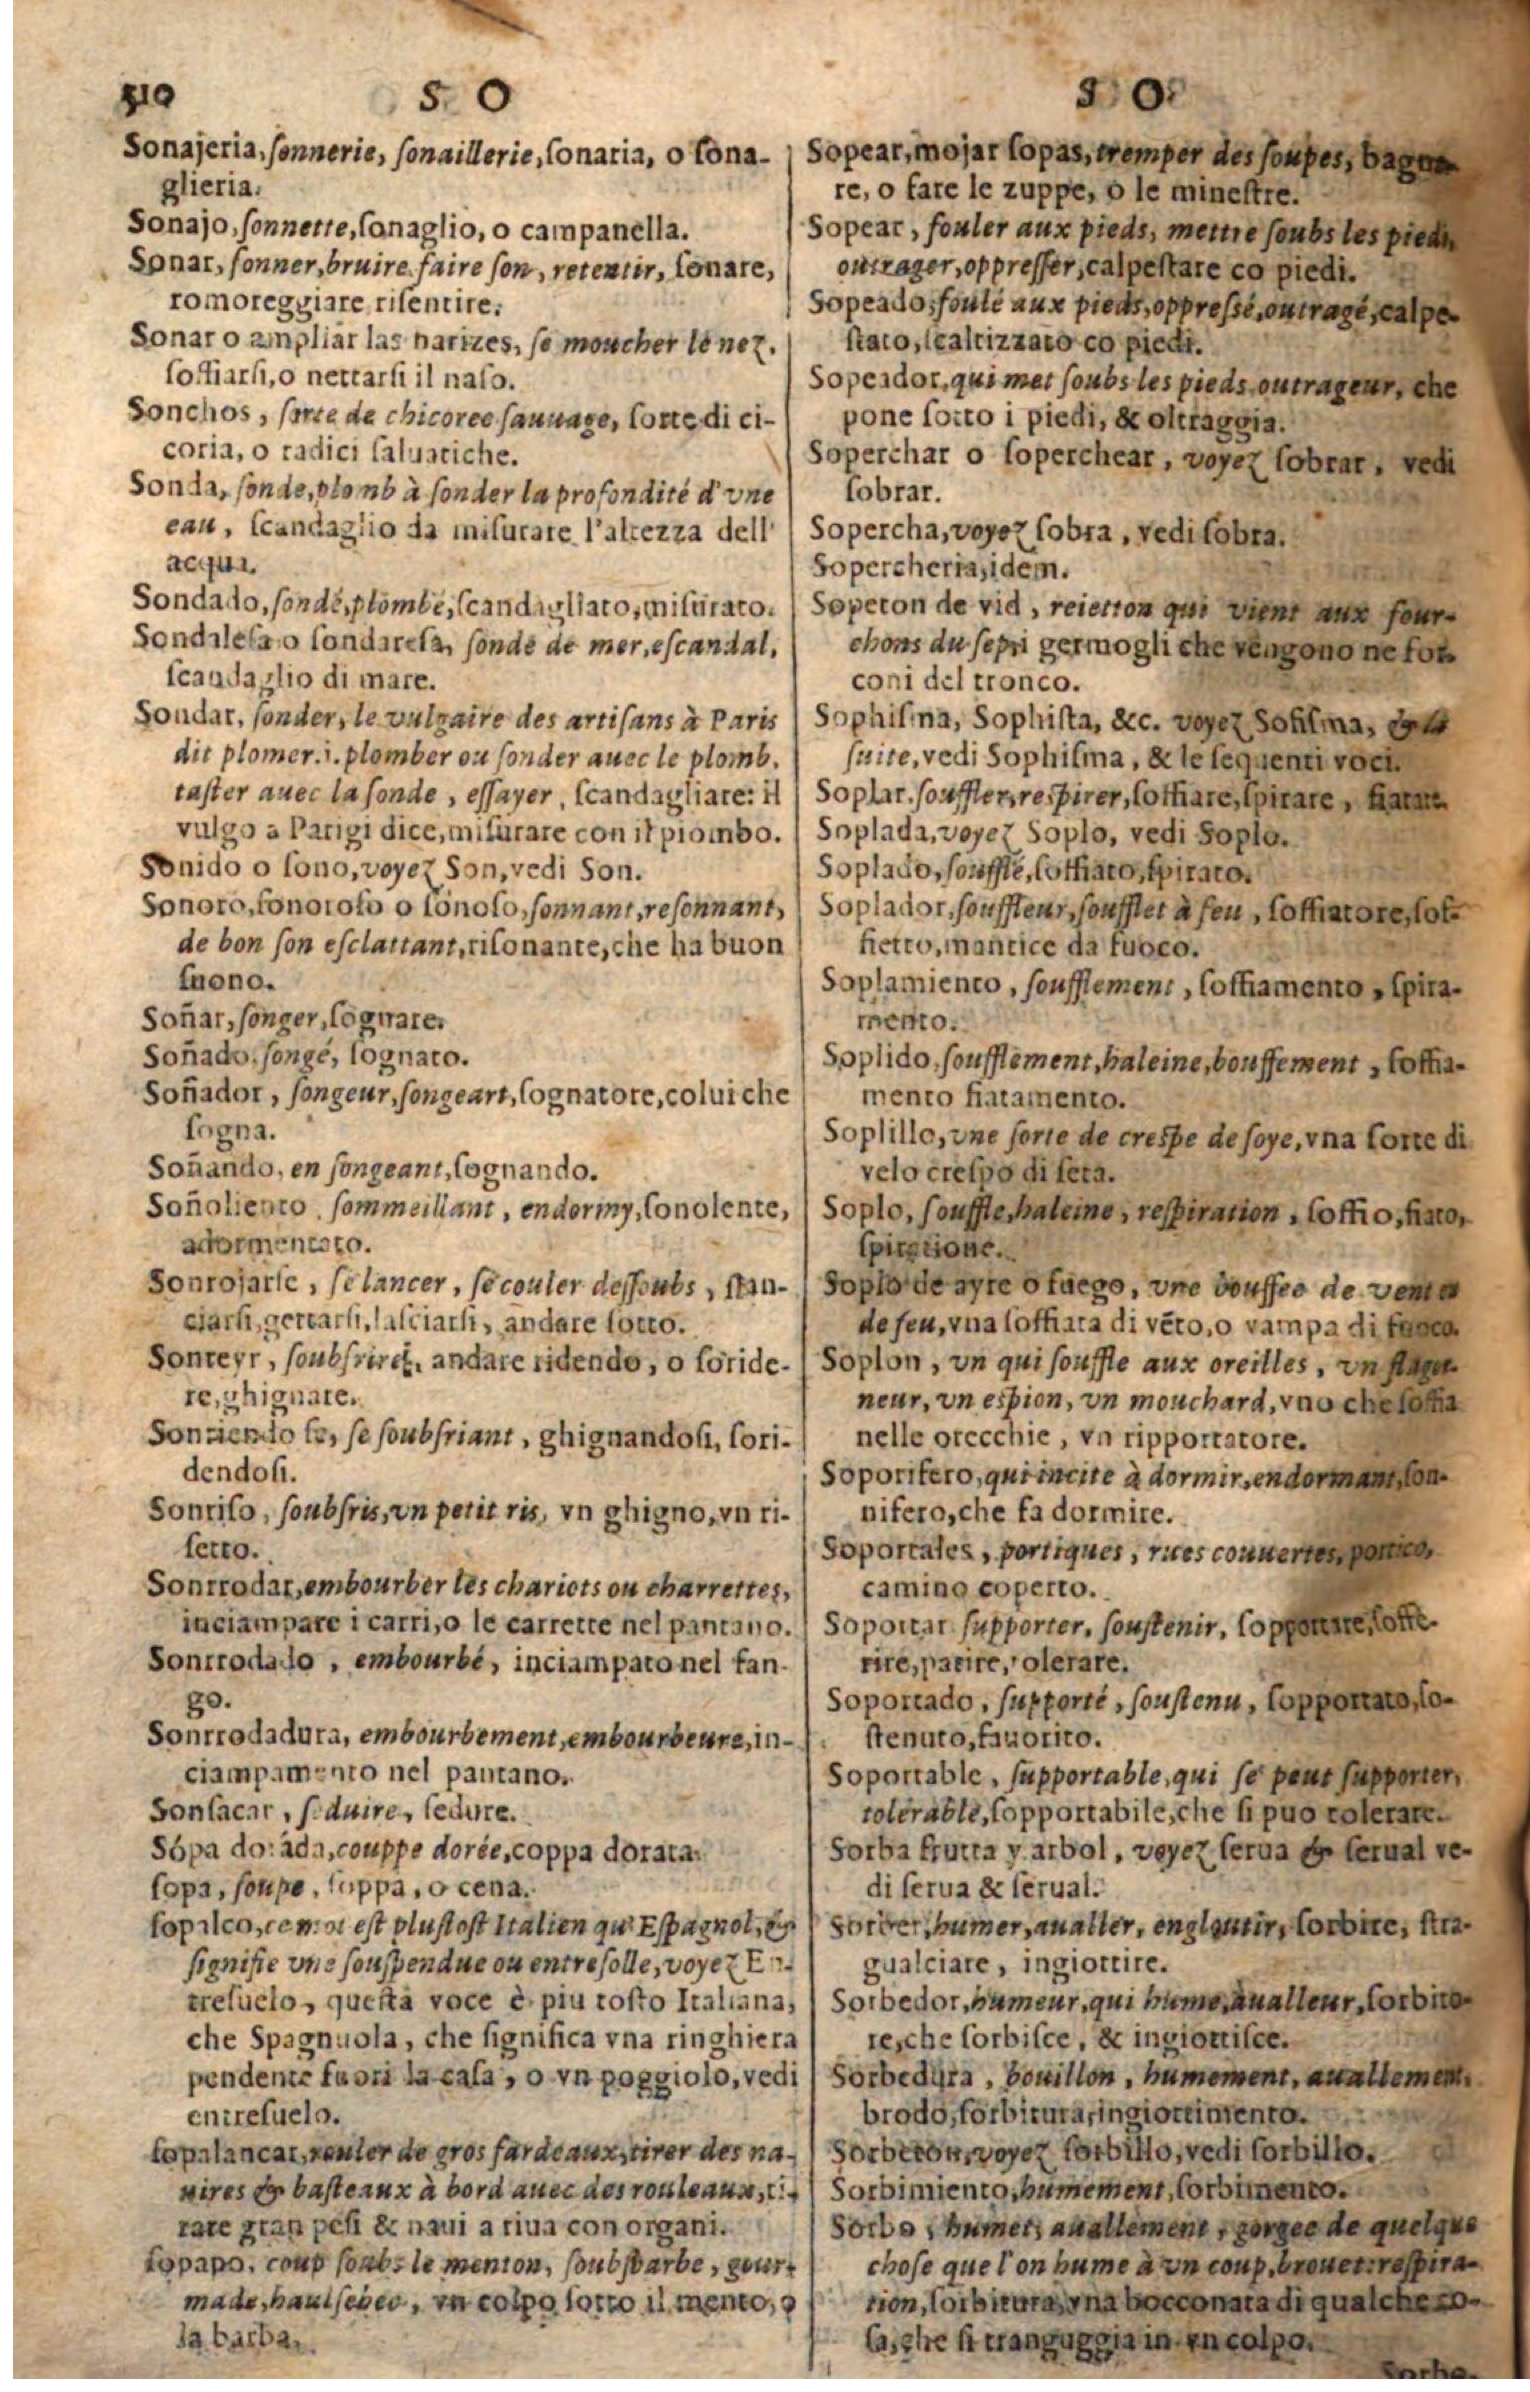 510 S O
Sonajeria, ſonnerie, ſonaillerie, ſonaria, o ſona-
glieria.
Sonajo, ſonnette, ſonaglio, o campanella.
Sonar, ſonner, bruire, faire ſon, retentir, ſonare,
romoreggiare, riſentire.
Sonar o ampliar las narizes, ſe moucher le nez.
ſoffiarſi, o nettarſi il naſo.
Sonchos, ſorte de chicoree ſauuage, ſorte di ci-
coria, o radici ſaluatiche.
Sonda, ſonde, plomb à ſonder la profondité d'vne
eau, ſcandaglio da miſurare l'altezza dell'
acqua.
Sondado, ſondé, plombé, ſcandagliato, miſurato.
Sondaleſa o ſondareſa, ſonde de mer, eſcandal,
ſcandaglio di mare.
Sondar, ſonder, le vulgaire des artiſans à Paris
dit plomer. i. plomber ou ſonder auec le plomb,
taſter auec la ſonde, eſſayer, ſcandagliare: il
vulgo a Parigi dice, miſurare con il piombo.
Sonido o ſono, voyez Son, vedi Son.
Sonoro, ſonoroſo o ſonoſo, ſonnant, reſonnant,
de bon ſon eſclattant, riſonante, che ha buon
ſuono.
Soñar, ſonger, ſognare.
Soñado, ſongé, ſognato.
Soñador, ſongeur, ſongeart, ſognatore, colui che
ſogna.
Soñando, en ſongeant, ſognando.
Soñoliento, ſommeillant, endormy, ſonolente,
adormentato.
Sonrojarſe, ſe lancer, ſe couler deſſoubs, ſlan-
ciarſi, gettarſi, laſciarſi, andare ſotto.
Sonreyr, ſoubſrire, andare ridendo, o ſoride-
re, ghignare.
Sonriendo ſe, ſe ſoubſriant, ghignandoſi, ſori-
dendoſi.
Sonriſo, ſoubſris, vn petit ris, vn ghigno, vn ri-
ſetto.
Sonrrodar, embourber les chariots ou charrettes,
inciampare i carri, o le carrette nel pantano.
Sonrrodado, embourbé, inciampato nel fan-
go.
Sonrrodadura, embourbement, embourbeure, in-
ciampamento nel pantano.
Sonſacar, ſeduire, ſedure.
Sópa doráda, couppe dorée, coppa dorata.
ſopa, ſoupe, ſoppa, o cena.
ſopalco, ce mot eſt pluſtoſt Italien qu'Eſpagnol, &
ſignifie vne ſouſpendue ou entreſolle, voyez En-
treſuelo, queſta voce è piu toſto Italiana,
che Spagnuola, che ſignifica vna ringhiera
pendente fuori la caſa, o vn poggiolo, vedi
entreſuelo.
ſopalancar, rouler de gros fardeaux, tirer des na-
uires & baſteaux à bord auec des rouleaux, ti-
rare gran peſi & naui a riua con organi.
ſopapo, coup ſoubs le menton, ſoubſbarbe, gour-
made, haulſebec, vn colpo ſotto il mento, o
la barba.
S O
Sopear, mojar ſopas, tremper des ſoupes, bagna-
re, o fare le zuppe, o le mineſtre.
Sopear, fouler aux pieds, mettre ſoubs les pieds,
outrager, oppreſſer, calpeſtare co piedi.
Sopeado, foulé aux pieds, oppreſſé, outragé, calpe-
ſtato, ſcaltizzato co piedi.
Sopeador, qui met ſoubs les pieds, outrageur, che
pone ſotto i piedi, & oltraggia.
Soperchar o ſoperchear, voyez ſobrar, vedi
ſobrar.
Sopercha, voyez ſobra, vedi ſobra.
Sopercheria, idem.
Sopeton de vid, reietton qui vient aux four-
chons du germogli che vengono ne for-
coni del tronco.
Sophiſma, Sophiſta, &c. voyez Sofiſma, & la
ſuite, vedi Sophiſma, & le ſequenti voci.
Soplar, ſouffler, reſpirer, ſoffiare, ſpirare, fiatare.
Soplada, voyez Soplo, vedi Soplo.
Soplado, ſoufflé, ſoffiato, ſpirato.
Soplador, ſouffleur, ſoufflet à feu, ſoffiatore, ſof-
fietto, mantice da fuoco.
Soplamiento, ſoufflement, ſoffiamento, ſpira-
mento.
Soplido, ſoufflement, haleine, bouffement, ſoffia-
mento fiatamento.
Soplillo, vne ſorte de creſpe de ſoye, vna ſorte di
velo creſpo di ſeta.
Soplo, ſouffle, haleine, reſpiration, ſoffio, fiato,
ſpiratione.
Soplo de ayre o fuego, vne bouffee de vent et
de feu, vna ſoffiata di vẽto, o vampa di fuoco.
Soplon, vn qui ſouffle aux oreilles, vn flagor-
neur, vn eſpion, vn mouchard, vno che ſoffia
nelle orecchie, vn ripportatore.
Soporifero, qui incite à dormir, endormant, ſon-
nifero, che fa dormire.
Soportales, portiques, rues couuertes, portico,
camino coperto.
Soportar ſupporter, ſouſtenir, ſopportare, ſoffe-
rire, patire, tolerare.
Soportado, ſupporté, ſouſtenu, ſopportato, ſo-
ſtenuto, fauorito.
Soportable, ſupportable, qui ſe peut ſupporter,
tolerable, ſopportabile, che ſi puo tolerare.
Sorba frutta y arbol, voyez ſerua & ſerual ve-
di ſerua & ſerual.
Sorber, humer, aualler, engloutir, ſorbire, ſtra-
gualciare, ingiottire.
Sorbedor, humeur, qui hume, aualleur, ſorbito-
re, che ſorbiſce, & ingiottiſce.
Sorbedura, bouillon, humement, auallement,
brodo, ſorbitura, ingiottimento.
Sorbeton, voyez ſorbillo, vedi ſorbillo.
Sorbimiento, humement, ſorbimento.
Sorbo, humet, auallement, gorgee de quelque
choſe que l'on hume à vn coup, brouet: reſpira-
tion, ſorbitura, vna bocconata di qualche co-
ſa, che ſi tranguggia in vn colpo.
Sorbe-